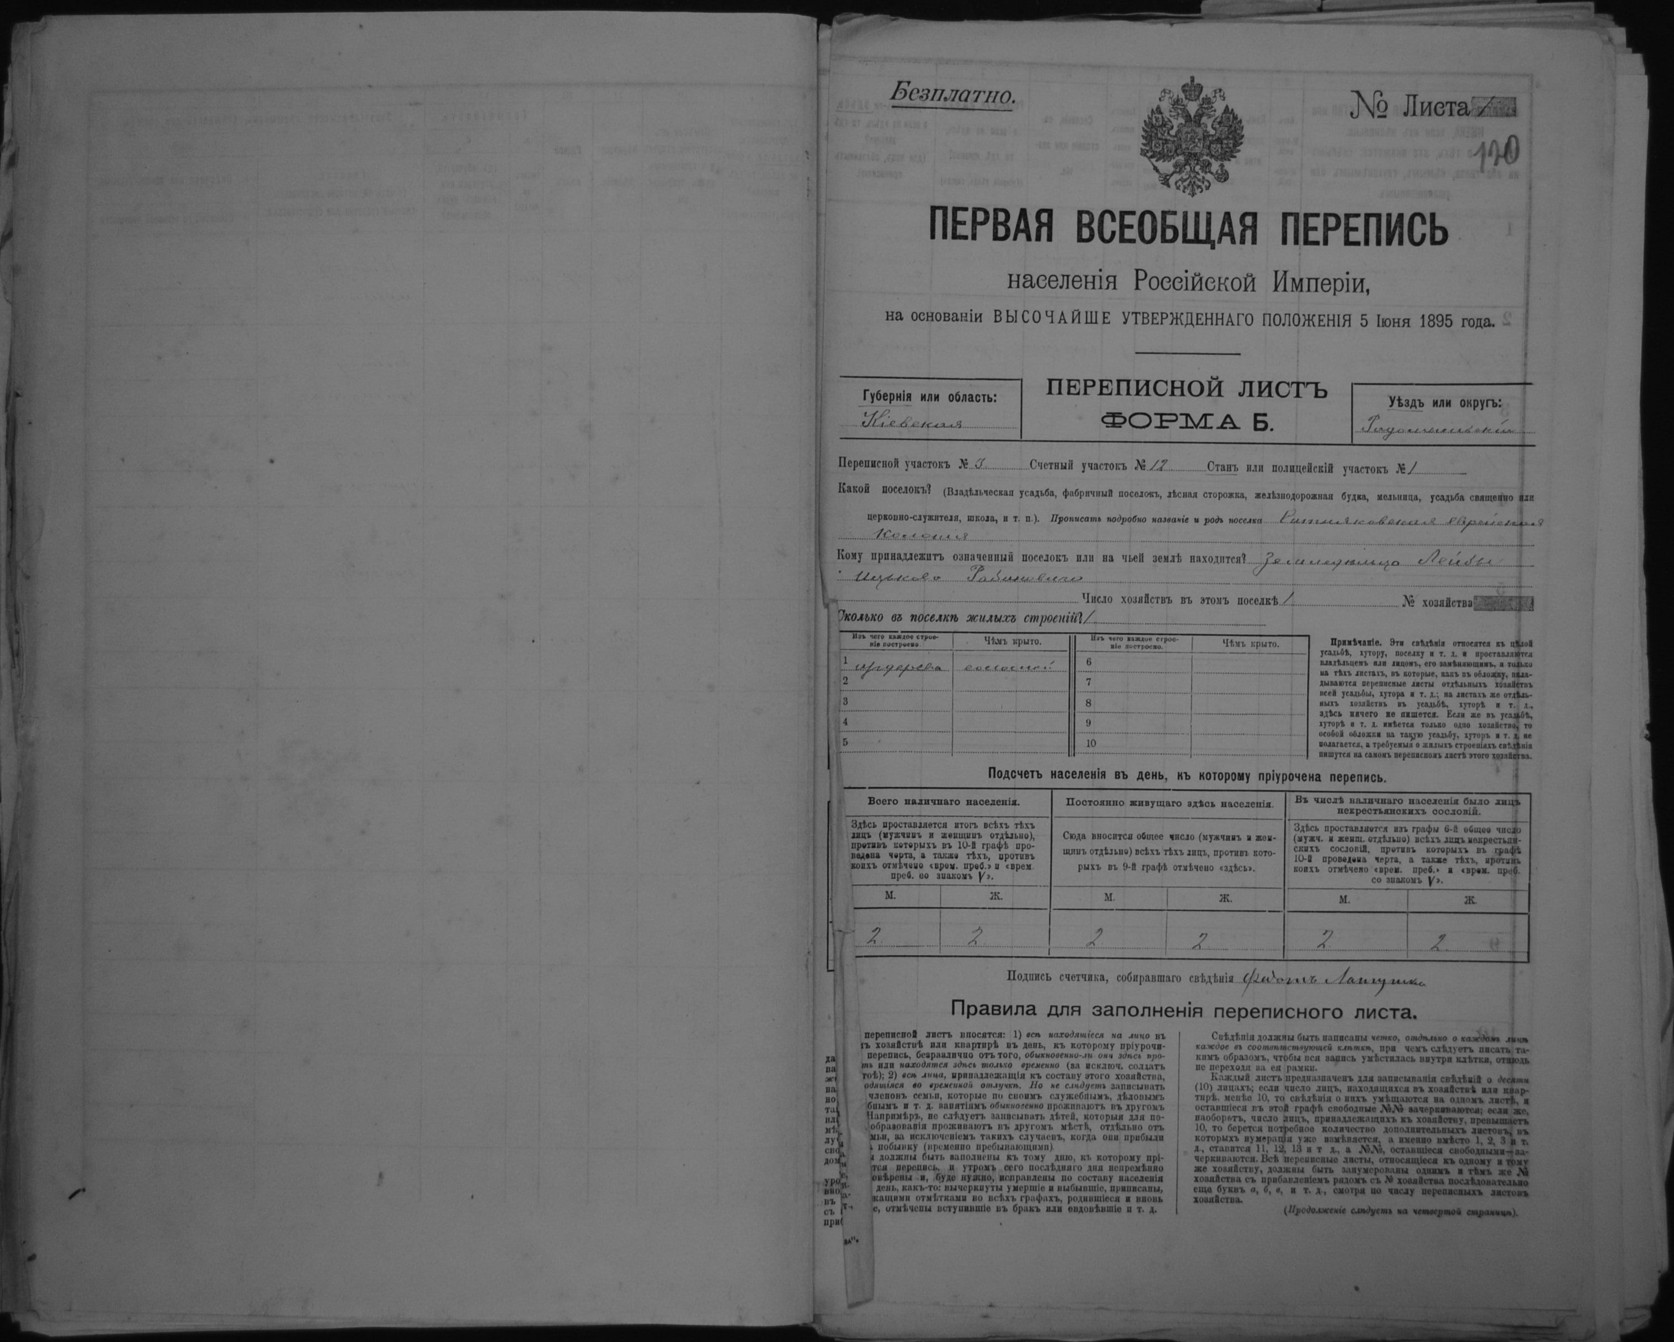 Безплатно.
№ Листа 1
120
ПЕРВАЯ ВСЕОБЩАЯ ПЕРЕПИСЬ
населенія Россійской Имперіи,
на основаніи ВЫСОЧАЙШЕ УТВЕРЖДЕННАГО ПОЛОЖЕНІЯ 5 Іюня 1895 года.
Губернія или область:
Кіевская
ПЕРЕПИСНОЙ ЛИСТЪ
ФОРМА Б.
Уѣздъ или округъ:
Радомысльскій
Переписной участокъ № 3 Счетный участокъ № 12 Станъ или полицейскій участокъ № 1
Какой поселокъ? (Владѣльческая усадьба, фабричный поселокъ, лѣсная сторожка, желѣзнодорожная будка, мельница, усадьба священно или
церковно-служителя, школа, и т. п.). Прописать подробно названіе и родъ поселка еврейская
колонія
Кому принадлежитъ означенный поселокъ или на чьей землѣ находится? Лейбы
Ицькова
Число хозяйствъ въ этомъ поселкѣ 1 № хозяйства
Сколько въ поселкѣ жилыхъ строеній? 1
Изъ чего каждое строе-
ніе построено.
Чѣмъ крыто.
Изъ чего каждое строе-
ніе построено.
Чѣмъ крыто.
1 издерева соломой
2
3
4
5
6
7
8
9
10
Примѣчаніе. Эти свѣдѣнія относятся къ цѣлой
усадьбѣ, хутору, поселку и т. д. и проставляются
владѣльцемъ или лицомъ, его замѣняющимъ, а только
на тѣхъ листахъ, въ которые, какъ въ обложку, вкла-
дываются переписные листы отдѣльныхъ хозяйствъ
всей усадьбы, хутора и т. д.; на листахъ же отдѣль-
ныхъ хозяйствъ въ усадьбѣ, хуторѣ и т. д.,
здѣсь ничего не пишется. Если же въ усадьбѣ,
хуторѣ и т. д. имѣется только одно хозяйство, то
особой обложки на такую усадьбу, хуторъ и т. д. не
полагается, а требуемыя о жилыхъ строеніяхъ свѣдѣнія
пишутся на самомъ переписномъ листѣ этого хозяйства.
Подсчетъ населенія въ день, къ которому пріурочена перепись.
Всего наличнаго населенія.
Здѣсь проставляется итогъ всѣхъ тѣхъ
лицъ (мужчинъ и женщинъ отдѣльно),
противъ которыхъ въ 10-й графѣ про-
ведена черта, а также тѣхъ, противъ
коихъ отмѣчено «врем. преб.» и «врем.
преб. со знакомъ V».
Постоянно живущаго здѣсь населенія.
Сюда вносится общее число (мужчинъ и жен-
щинъ отдѣльно) всѣхъ тѣхъ лицъ, противъ кото-
рыхъ въ 9-й графѣ отмѣчено «здѣсь».
Въ числѣ наличнаго населенія было лицъ
некрестьянскихъ сословій.
Здѣсь проставляется изъ графы 6-й общее число
(мужч. и женщ. отдѣльно) всѣхъ лицъ некрестьян-
скихъ сословій, противъ которыхъ въ графѣ
10-й проведена черта, а также тѣхъ, противъ
коихъ отмѣчено «врем. преб.» и «врем. преб.
со знакомъ V».
М. Ж. М. Ж. М. Ж.
2 2 2 2 2 2
Подпись счетчика, собиравшаго свѣдѣнія
Правила для заполненія переписного листа.
переписной листъ вносятся: 1) всѣ находящіеся на лицо въ
хозяйствѣ или квартирѣ въ день, къ которому пріурочи-
перепись, безразлично отъ того, обыкновенно-ли они здѣсь про-
или находятся здѣсь только временно (за исключ. солдатъ
2) всѣ лица, принадлежащія къ составу этого хозяйства,
во временной отлучкѣ. Но не слѣдуетъ записывать
членовъ семьи, которые по своимъ служебнымъ, дѣловымъ
и т. д. занятіямъ обыкновенно проживаютъ въ другомъ
Напримѣръ, не слѣдуетъ записывать дѣтей, которыя для по-
образованія проживаютъ въ другомъ мѣстѣ, отдѣльно отъ
за исключеніемъ такихъ случаевъ, когда они прибыли
побывку (временно пребывающими).
должны быть заполнены къ тому дню, къ которому прі-
перепись, и утромъ сего послѣдняго дня непремѣнно
и, буде нужно, исправлены по составу населенія
день, какъ-то: вычеркнуты умершіе и выбывшіе, приписаны,
отмѣтками во всѣхъ графахъ, родившіеся и вновь
отмѣчены вступившіе въ бракъ или овдовѣвшіе и т. д.
Свѣдѣнія должны быть написаны четко, отдѣльно о каждомъ лицѣ
каждое въ соотвѣтствующей клѣткѣ, при чемъ слѣдуетъ писать та-
кимъ образомъ, чтобы вся запись умѣстилась внутри клѣтки, отнюдь
не переходя за ея рамки.
Каждый листъ предназначенъ для записыванія свѣдѣній о десяти
(10) лицахъ; если число лицъ, находящихся въ хозяйствѣ или квар-
тирѣ, менѣе 10, то свѣдѣнія о нихъ умѣщаются на одномъ листѣ, и
оставшіеся въ этой графѣ свободные №№ зачеркиваются; если же,
наоборотъ, число лицъ, принадлежащихъ къ хозяйству, превышаетъ
10, то берется потребное количество дополнительныхъ листовъ, въ
которыхъ нумерація уже измѣняется, а именно вмѣсто 1, 2, 3 и т.
д., ставится 11, 12, 13 и т д., а №№, оставшіеся свободными—за-
черкиваются. Всѣ переписные листы, относящіеся къ одному и тому
же хозяйству, должны быть занумерованы однимъ и тѣмъ же №
хозяйства съ прибавленіемъ рядомъ съ № хозяйства послѣдовательно
еще буквъ а, б, в, и т. д., смотря по числу переписныхъ листовъ
хозяйства.
(Продолженіе слѣдуетъ на четвертой страницѣ).